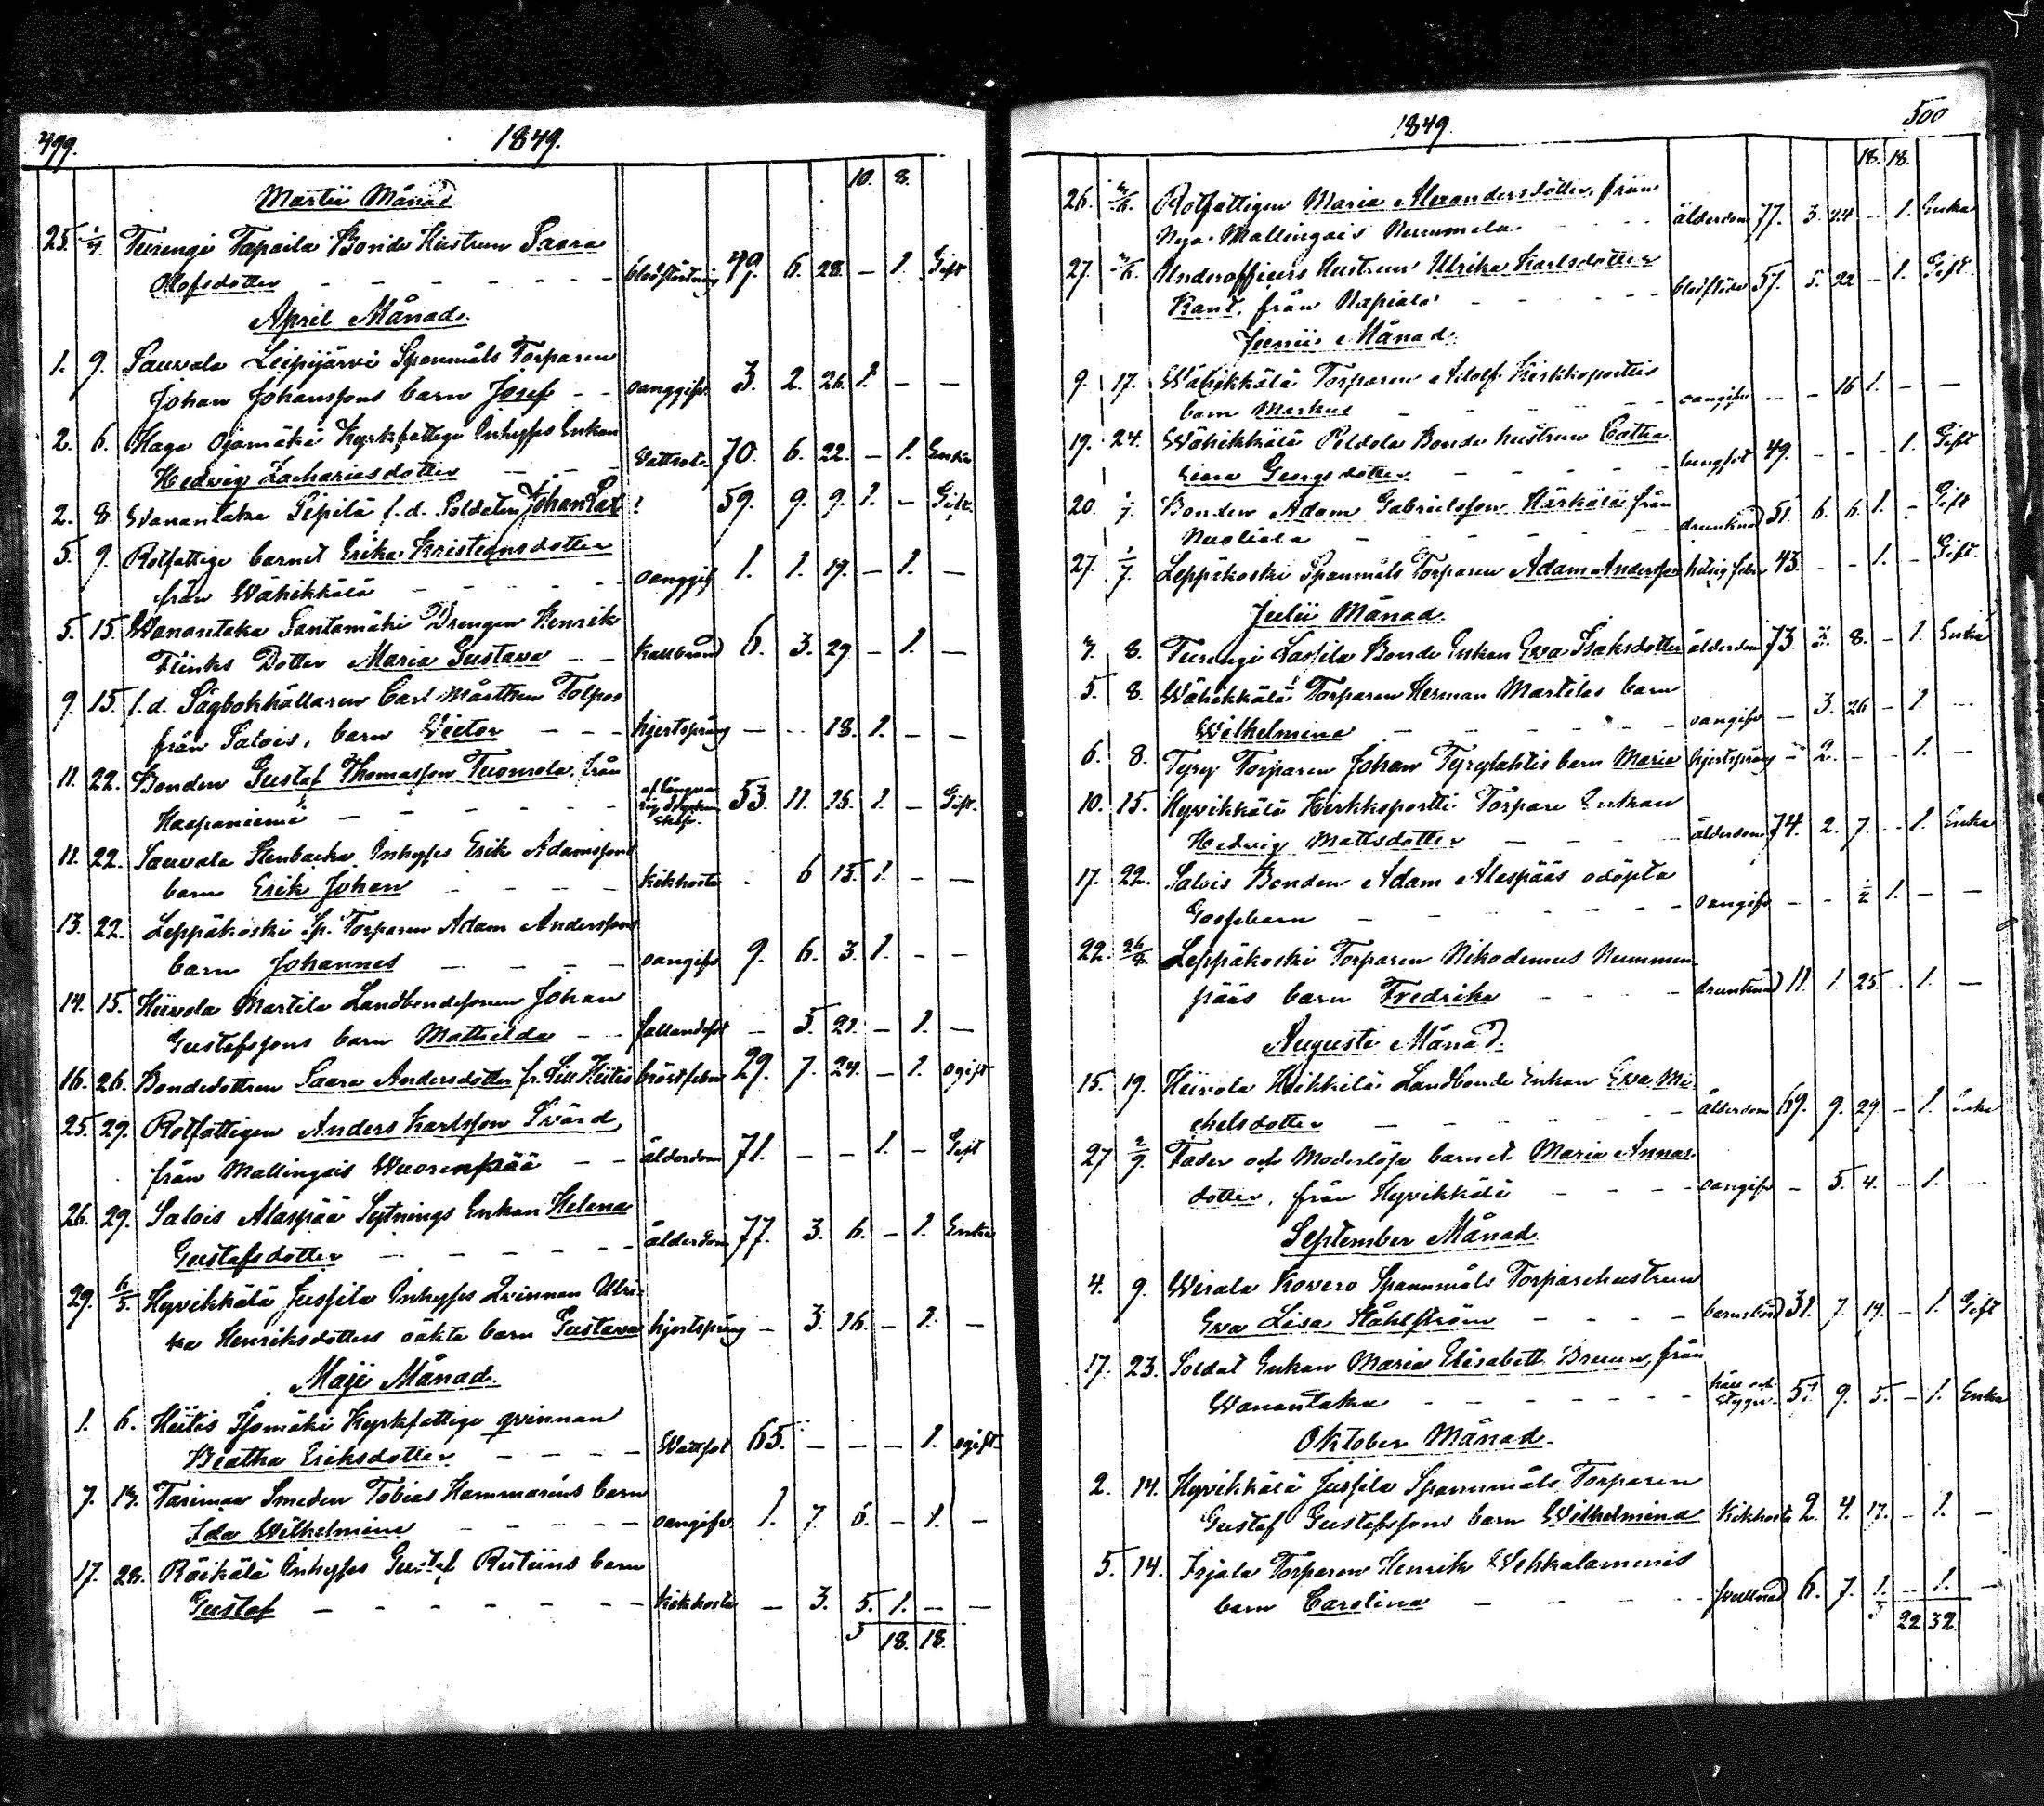 499. 1849.
10. 8.
Martii Månad
25. 1/4. Turengi Tapaila Bonde Hustrun Saara
Olofsdotter - - - - - - blodstörtning 49. 6. 28. - 1. Gift
April Månad.
1. 9. Sauvala Leipijärvi Spanmåls Torparen
Johan Johanssons barn Josef - - oanggifv. 3. 2. 26. 1. - -
2. 6. Haga Ojamäki Kyrkfattige Inhyses Enkan
Hedvig Zachariasdotter - - - Wattsot. 70. 6. 22. - 1. Enka
2. 8. Wanantaka Sipilä f.d. Soldaten Johan ? 59. 9. 9. 1. - Gift.
5. 9. Rotfattige barnet Erika Kristiansdotter
från Wähikkälä - - - - - oanggif 1. 1. 19. - 1. -
5. 15. Wanantaka Santamäki Drengen Henrik
Flinks Dotter Maria Gustava - - Kallbrand 6. 3. 29 - 1. -
9. 15. f.d. Sågbokhållaren Carl Mårthen Tolpos
från Salois, barn Victor - - - hjertsprång - - 18. 1. - -
11. 22. Bonden Gustaf Thomasson Tuomola, från
Haapaniemi - - - - - - af långva
rig 53. 11. 15. 1. - Gift.
11. 22. Sauvala Stenbacka Inhyses Erik Adamssons
barn Erik Johan - - - - Kikhosta - 6 15. 1. - -
13. 22. Leppäkoski Sp. Torparen Adam Anderssons
barn Johannes - - - - oangifv 9. 6. 3. 1. - -
14. 15. Heinola Martila Landbondesonen Johan
Gustafssons barn Mathilda - - fallandesot - 5. 21. - 1. -
16. 26. Bondedottren Saara Andersdotter fr. Hiitis bröstfeber 29. 7. 24. - 1. ogift
25. 29. Rotfattigen Anders Karlsson Svärd,
från Mallingais Wuorenpää - - ålderdom 71. - - 1. - Gift
26. 29. Salois Alaspää Sytnings Enkan Helena
Gustafsdotter - - - - - - ålderdom 77. 3. 6. - 1. Enka
29. 6/5. Hyvikkälä Jussila Inhyses Qvinnan Ulri-
ka Henriksdotters oäkta barn Gustava hjertsprång - 3. 16. - 1. -
Maji Månad.
1. 6. Hiitis Isomäki Kyrkfattige qvinnan
Beatha Eriksdotter - - - - Wattsot 65. - - - 1. ogift
7. 13. Tarinmaa Smeden Tobias Hammaréns barn
Ida Wilhelmina - - - - - oangifv. 1. 7 6. - 1. -
17. 28. Räikälä Inhyses Gustaf Rutiins barn
Gustaf - - - - - - - Kikhosta - 3. 5. 1. - -
18. 18.
1849. 500
18. 18.
26. Rotfattigen Maria Alexandersdotter, från
Nya-Mallingais Nummela - - - ålderdom 77. 3. 24 - 1. Enka
27. Underofficers Hustrun Ulrika Karlsdotter
Rant, från Napiala - - - - blodflöde 57. 5. 22 - 1. Gift
Junii Månad.
9. 17. Wähikkälä Torparen Adolf Kirkkoporttis
barn Markus - - - - - oangifv - - 16 1. - -
19. 24. Wähikkälä Peldola Bonde hustrun Catha
rina Georgsdotter - - - - - lungsot 49. - - - 1. Gift
20. Bonden Adam Gabrielsson Härkälä från
Nuoliala - - - - - - drunknad 51. 6. 6. 1. - Gift
27. 1/7. Leppäkoski Spanmåls Torparen Adam Andersson hetsig feber 43. - - 1. - Gift.
Julii Månad.
8. Turengi Lassila Bonde Enkan Eva Isaksdotter ålderdom 73 8. - 1. Enka
5. 8. Wähikkälä Torparen Herman Martilas barn
Wilhelmina - - - - - - oangifv - 3. 26 - 1. -
6. 8. Tyry Torparen Johan Tyrylahtis barn Maria hjertsprång - 2. - - 1. -
10. 15. Hyvikkälä Kirkkoportti Torpare Enkan
Hedvig Mattsdotter - - - ålderdom 74. 2. 7. - 1. Enka
17. 22. Salois Bonden Adam Alaspääs odöpta
Gossebarn - - - - - - oangifv - - 1/2 1. - -
22. Leppäkoski Torparen Nikodemus Nummen-
pääs barn Fredrika - - - - drunknad 11. 1 25. - 1. -
Augusti Månad.
15. 19. Heinola Heikkilä Landbonde Enkan Eva Mi-
chelsdotter - - - - - - ålderdom 69. 9. 29. - 1. Enka
27 2/9. Fader och Moderlösa barnet Maria Annas-
dotter, från Hyvikkälä - - - - oangifv - 5. 4. - 1. -
September Månad
4. 9. Wirala Kovero Spannmåls Torparehustrun
Eva Lisa Ståhlström - - - - barnsbörd 31. 7. 14. - 1. Gift
17. 23. Soldat Enkan Maria Elisabeth Bruun, från
Wanantaka - - - - - - håll och
stygn 51. 9. 5. - 1. Enka
Oktober Månad.
2. 14. Hyvikkälä Jussila Spannmåls Torparen
Gustaf Gustafssons barn Wilhelmina Kikhosta 2. 4. 17. - 1. -
5. 14. Irjala Torparen Henrik Wehkalammis
barn Carolina - - - - - svullnad 6. 7. 1. - 1. -
22 32.